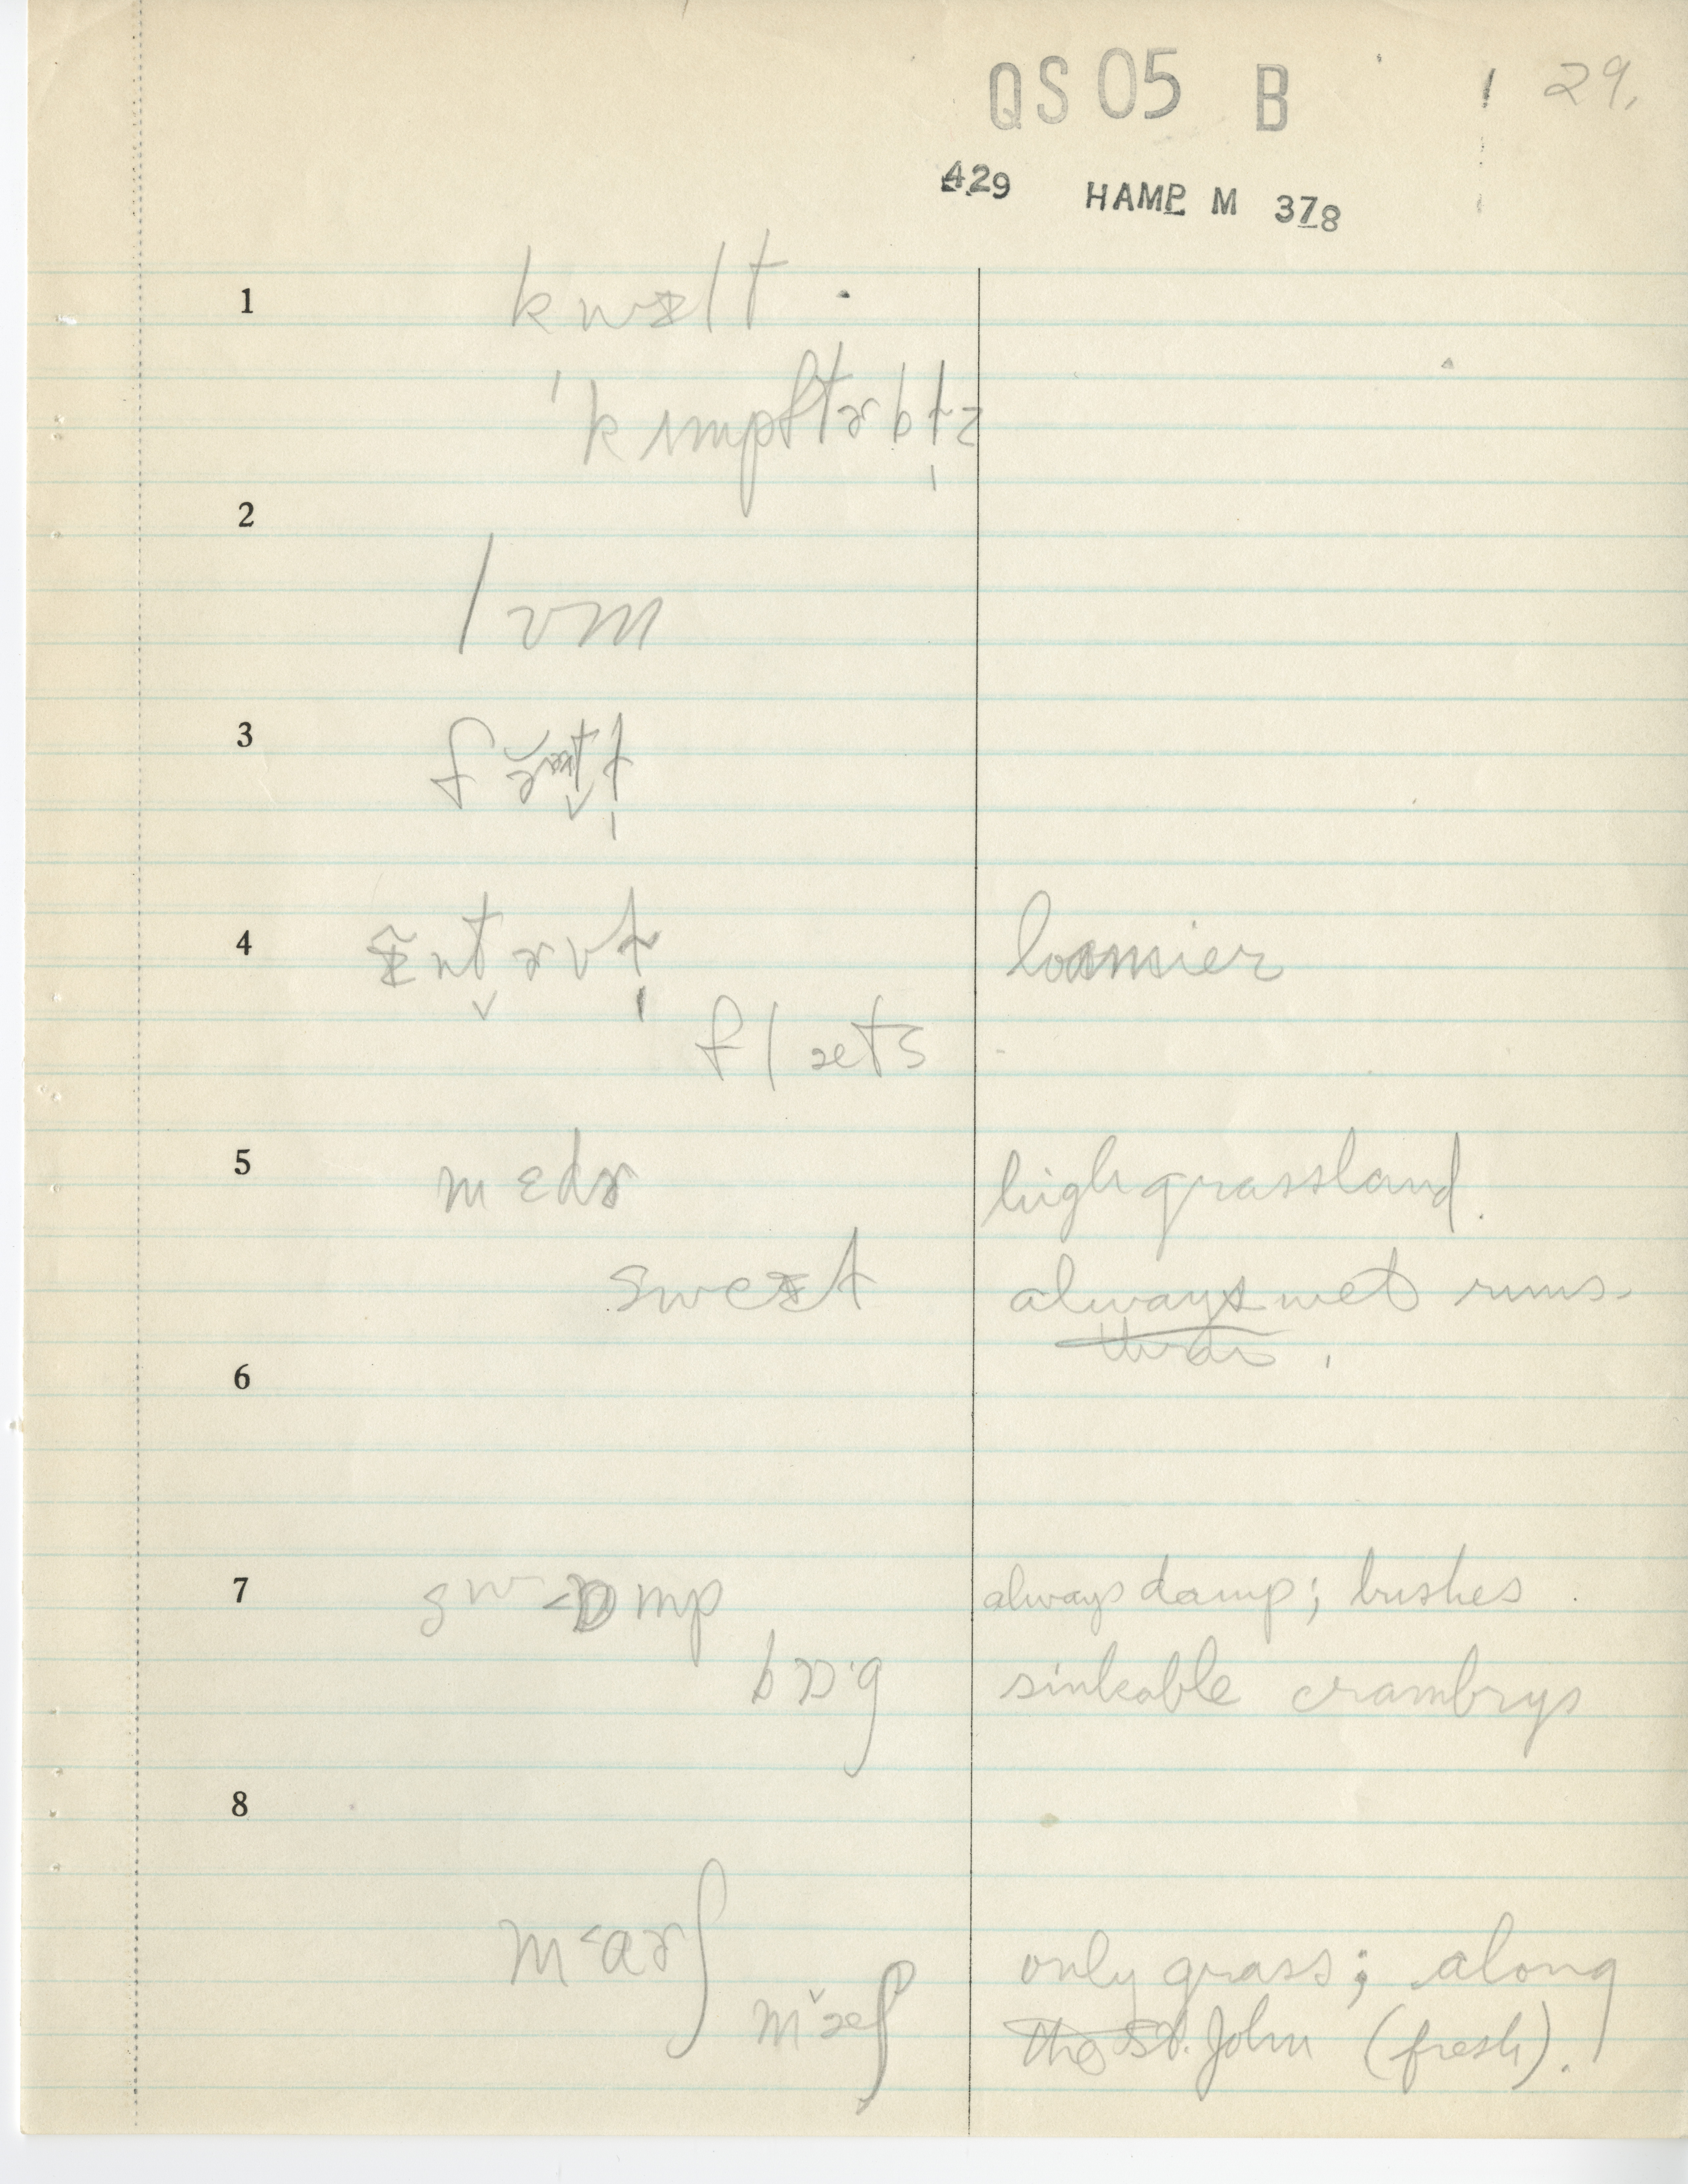 QS 05 B 29.
429 HAMP. M 378
1 kwɪlt
'kɪmpftɚbḷz
2
lvm
3
4
loamier
flæts
5 mɛdɚ high grassland.
swɛɪt always wet runs.
6
7 swɒmp always damp; bushes
bɒ·g sinkable crambrys
8
m˂ɑɚʃ only grass; along
mæ̌ʃ the St. John (fresh).